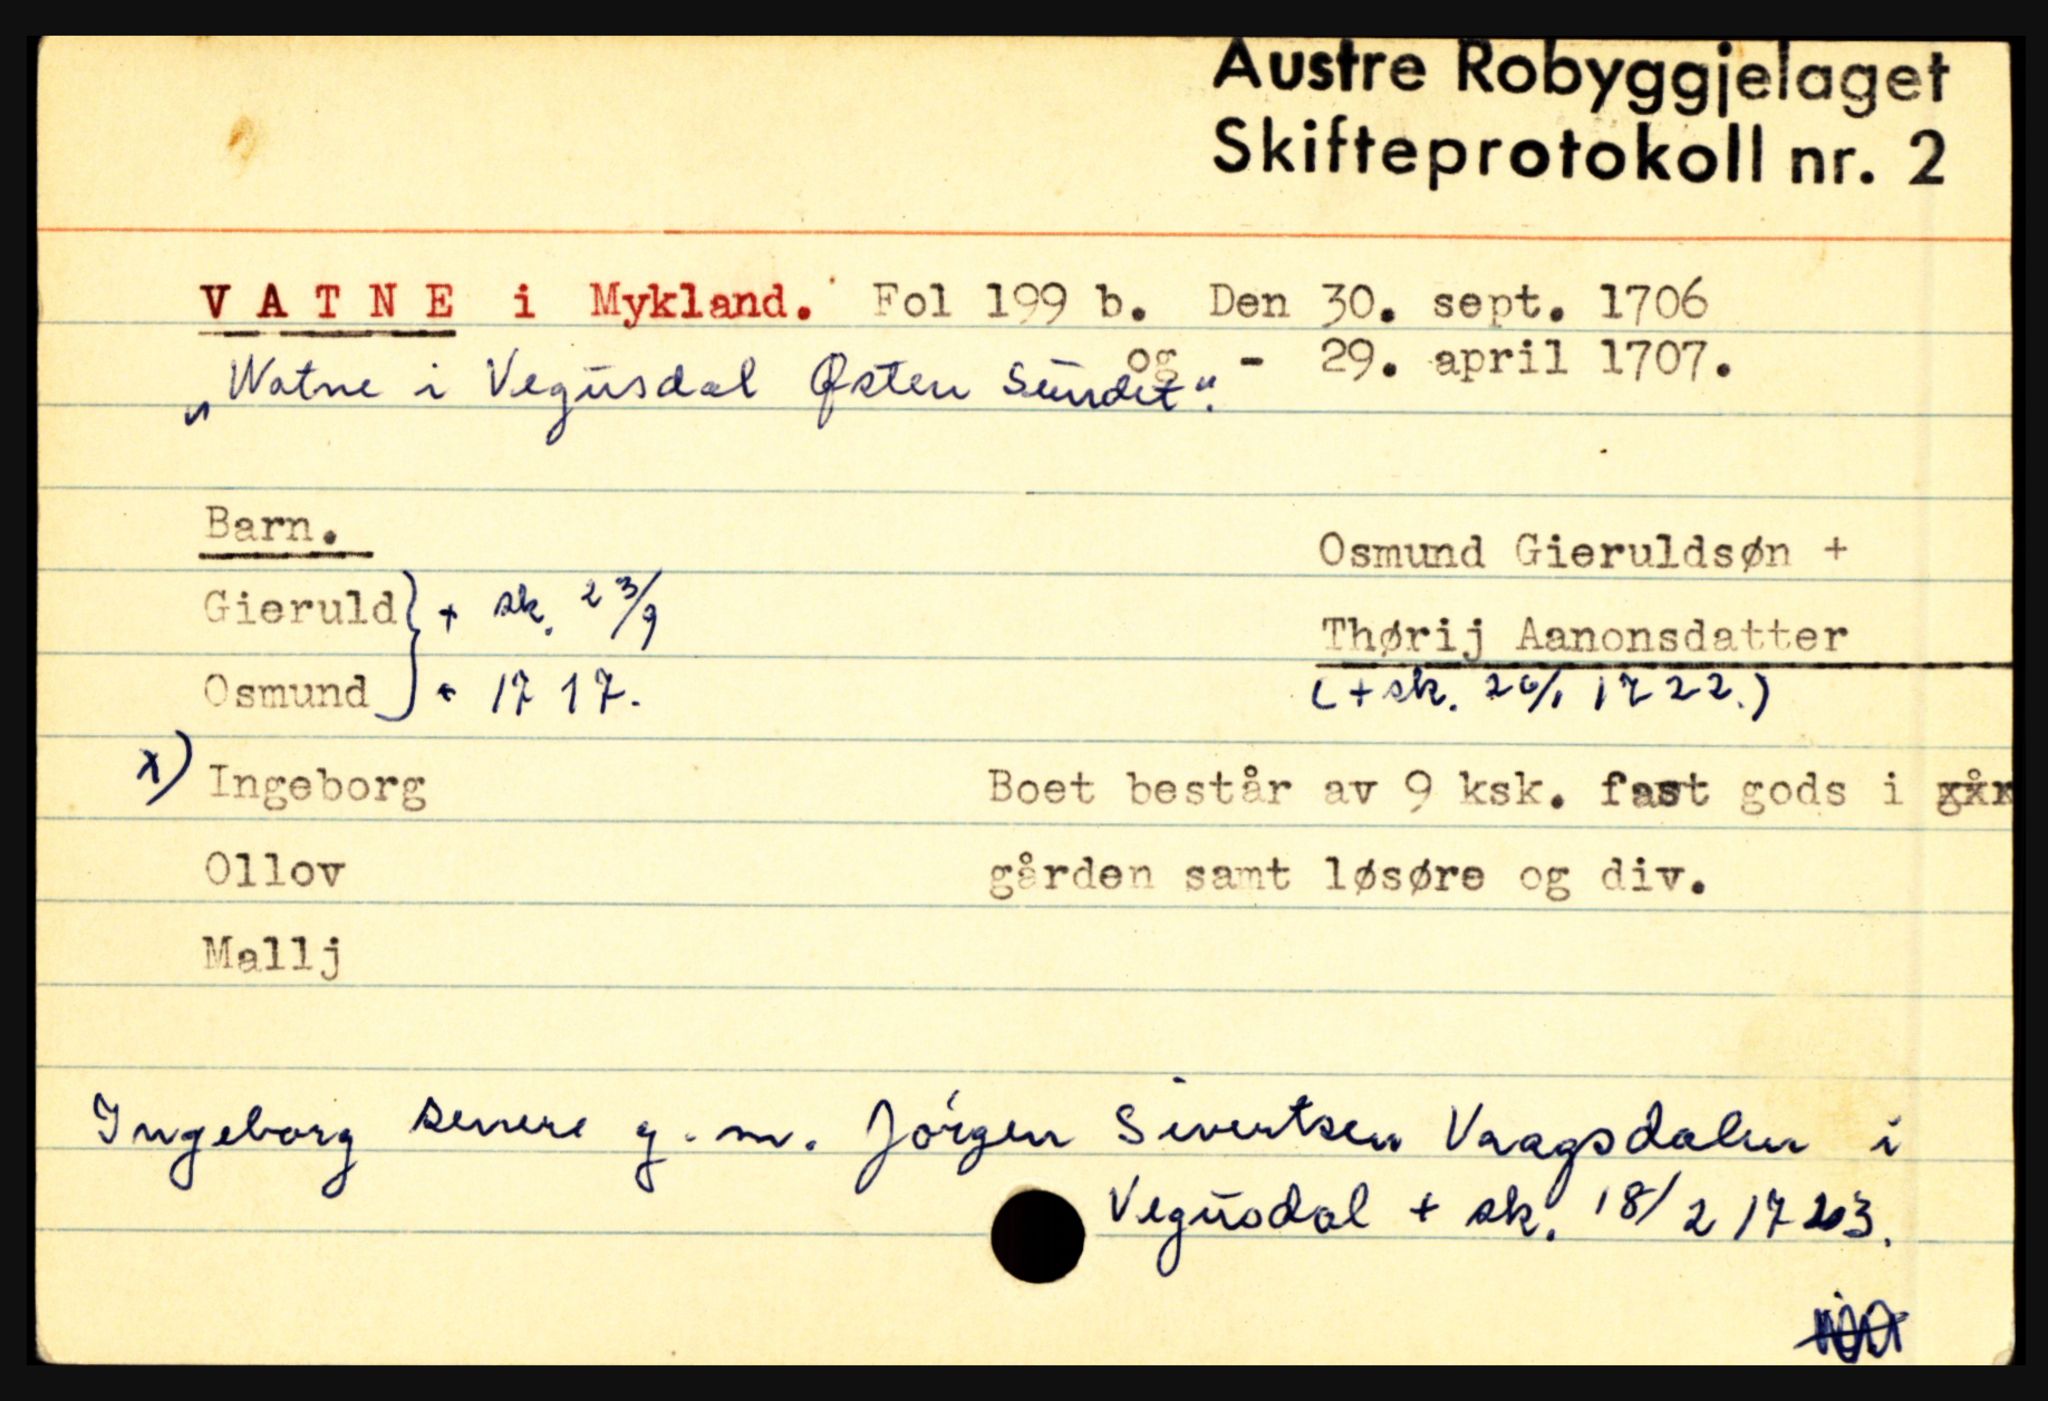 Austre Robyggjelaget
Skifteprotokoll nr. 2
V A T N E i Mykland. Fol 199 b. Den 30. sept. 1706
og - 29. april 1707.
„Watne i Vegusdal Østen Sundet".
Barn.
Osmund Gieruldsøn +
Gieruld } + sk. 23/9
Thørij Aanonsdatter
Osmund } + 1717.
(+ sk. 20/1 1722.)
x) Ingeborg
Boet består av 9 ksk. fast gods i
Ollov
gården samt løsøre og div.
Mallj
Ingeborg senere g. m. Jørgen Sivertsen Vaagsdalen i
Vegusdal + sk. 18/2 1723.